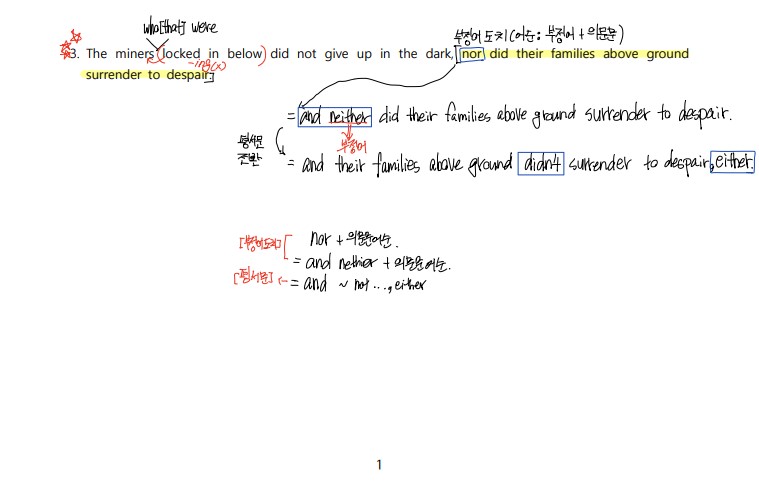 who[that] were
부정어 도치(어순: 부정어 + 의문문)
3. The miners (locked in below) did not give up in the dark, [nor did their families above ground
-ing(x)
surrender to despair.]
= and neither did their families above ground surrender to despair.
부정어
평서문
전환
= and their families above ground didn't surrender to despair, either.
[부정어도치] nor + 의문문어순.
= and nethier + 의문문어순.
[평서문] ← = and ~ not ..., either
1